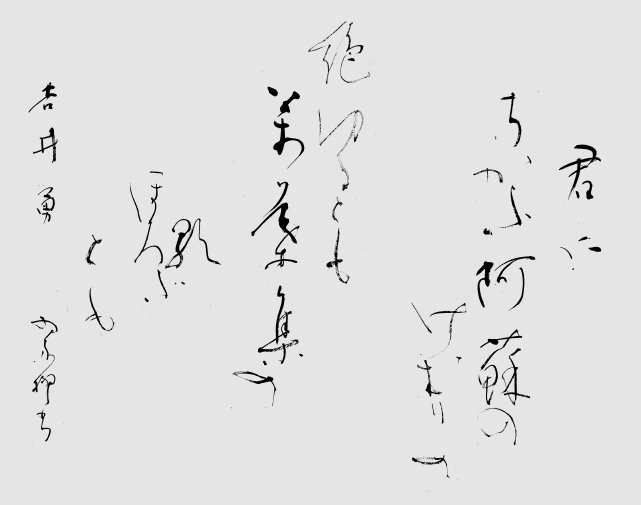 君に
ちかふ阿蘇の
けむりの
絶ゆるとも
萬葉集の
歌
ほろぶ
とも
吉井勇